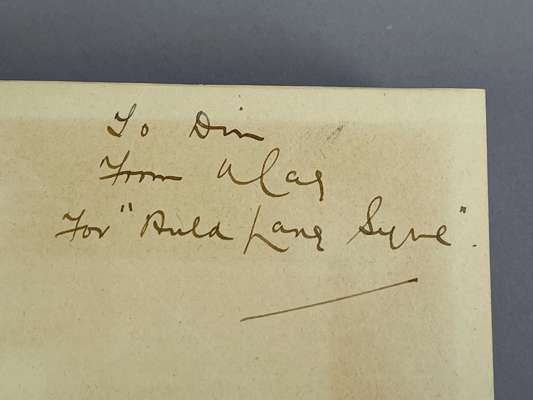 To Dim
From
For "Auld Lang Syne".